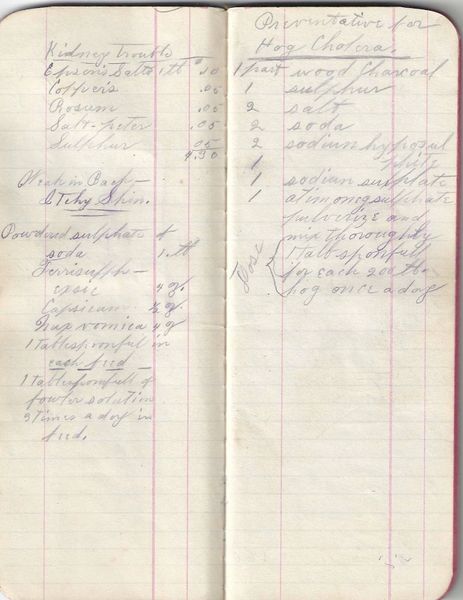 Kidney Trouble
Epson Salts 1 lb .10
Copperis .05
Rosum .05
Salt-peter .05
Sulphur .05
.30
Weak in Back
Itchy Skin.
Powdered sulphate of
soda 1 lb
Ferrisulph-
Capsicum
Nux vomica 4 oz
1 tablespoonful in
each feed
1 tablespoonfull of
fowler solution
3 times a day in
feed.
Preventative for
Hog Cholera.
1 part wood charcoal
1 sulphur
2 salt
2 soda
2 sodium hyposul
1 phite
1 sodium sulphate
1 atimony sulphate
pulverize and
mix thoroughly
Dose 1 tablespoonfull
for each 200 lb
hog once a day